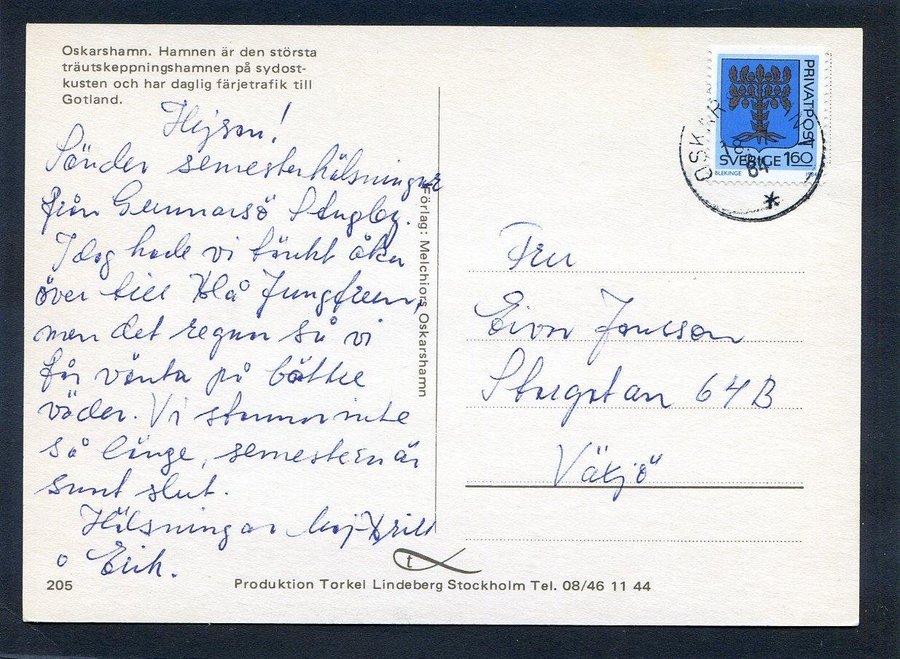 Oskarshamn. Hamnen är den största
träutskeppningshamnen på sydost-
kusten och har daglig färjetrafik till
Gotland.
Hejsan!
Sänder semesterhälsningar
från Gunnarsö Stugby.
Idag hade vi tänkt åka
över till Blå Jungfrun,
men det regnar så vi
får vänta på bättre
väder. Vi stannar inte
så länge, semestern är
snart slut.
Hälsningar Maj-Britt
o Erik.
205
Produktion Torkel Lindeberg Stockholm Tel. 08/46 11 44
Förlag: Melchiors, Oskarshamn
PRIVATPOST
SVERIGE 160
BLEKINGE
84
Fru
Eivor Jonsson
64 B
Växjö